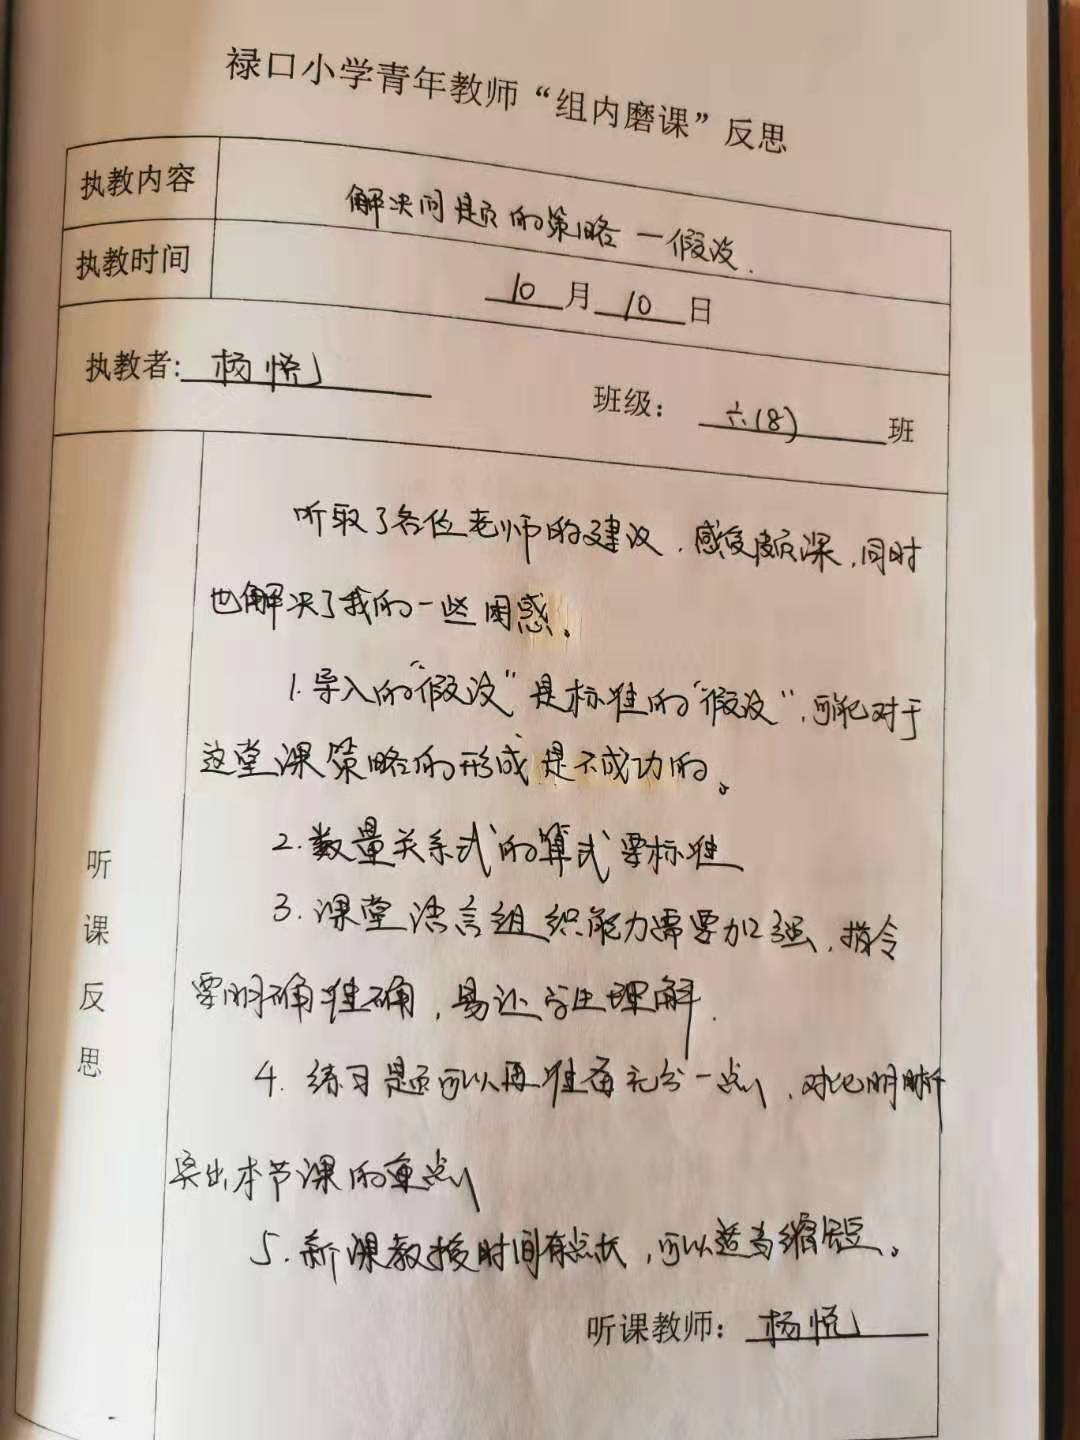 禄口小学青年教师“组内磨课”反思
执教内容
解决问题的策略—假设.
执教时间
10月10日
执教者:杨悦
班级：六(8)班
听课反思
听取了各位老师的建议，感受颇深，同时
也解决了我的一些困惑。
1.导入的“假设”是标准的“假设”，可能对于
这堂课策略的形成是不成功的。
2.数量关系式的算式要标准
3.课堂语言组织能力需要加强，指令
要明确准确，易让学生理解.
4.练习题可以再准备充分一点，对比明晰
突出本节课的重点
5.新课教授时间有点长，可以适当缩短。
听课教师：杨悦